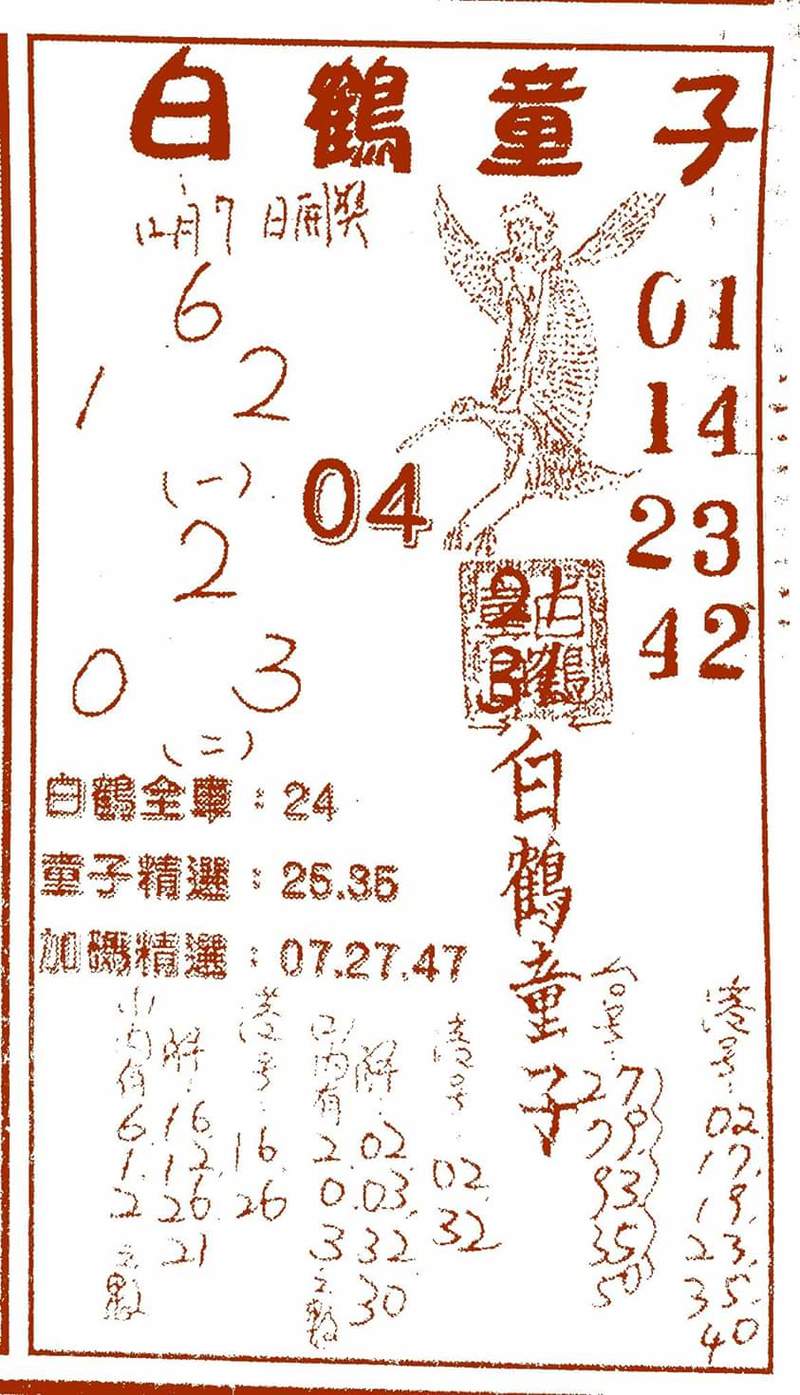 白鶴童子
12月7日開獎
6
1 2
(一)
2
0 3
(二)
04
01
14
23
42
白鶴童子
白鶴全車：24
童子精選：25.35
加碼精選：07.27.47
內有
6
1
2
之數
解
16
12
26
21
港号
16
26
內有
2
0
3
之數
解
02
03
32
30
港号
02
32
台号
27
79
93
35
50
港号
02
17
19
23
35
40